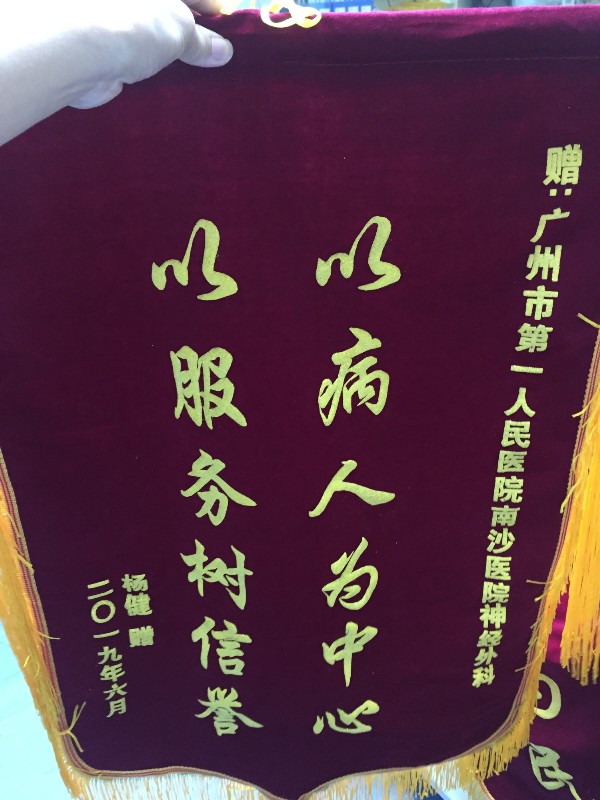 赠:广州市第一人民医院南沙医院神经外科
以病人为中心
以服务树信誉
杨健 赠
二〇一九年六月
民